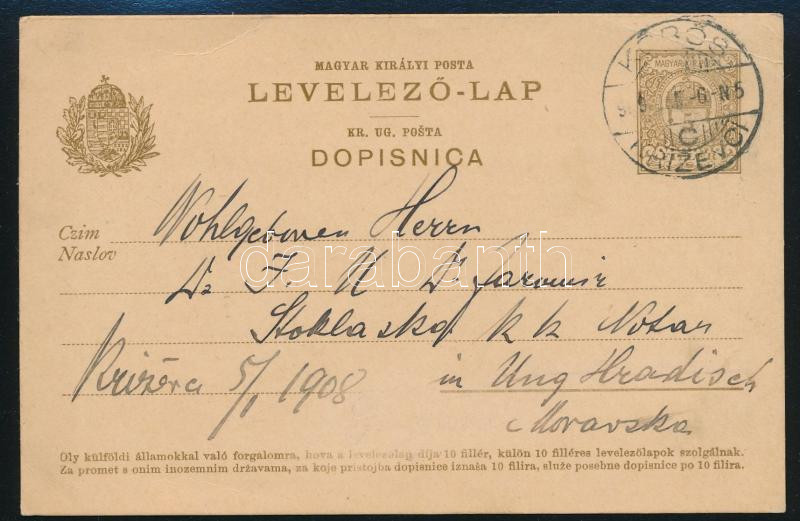 MAGYAR KIRÁLYI POSTA
LEVELEZŐ-LAP
KR. UG. POŠTA
DOPISNICA
KŐRÖS
MAGYAR
6 N5
C
KRIŽEVCI
Czim
Naslov
Wohlgeboren Herrn
Dr F. U. Dr. Jaromir
Stoklaska k k Notar
Križevci 5/I 1908
in Ung Hradisch
Moravska
darabanth
Oly külföldi államokkal való forgalomra, hova a levelezőlap díja 10 fillér, külön 10 filléres levelezőlapok szolgálnak.
Za promet s onim inozemnim državama, za koje pristojba dopisnice iznaša 10 filira, služe posebne dopisnice po 10 filira.